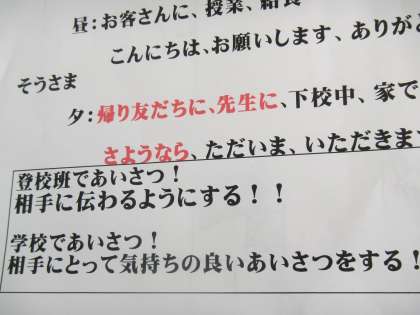 昼：お客さんに、授業、給食
こんにちは、お願いします、ありが
そうさま
夕：帰り友だちに、先生に、下校中、家で
さようなら、ただいま、いただきま
登校班であいさつ！
相手に伝わるようにする！！
学校であいさつ！
相手にとって気持ちの良いあいさつをする！